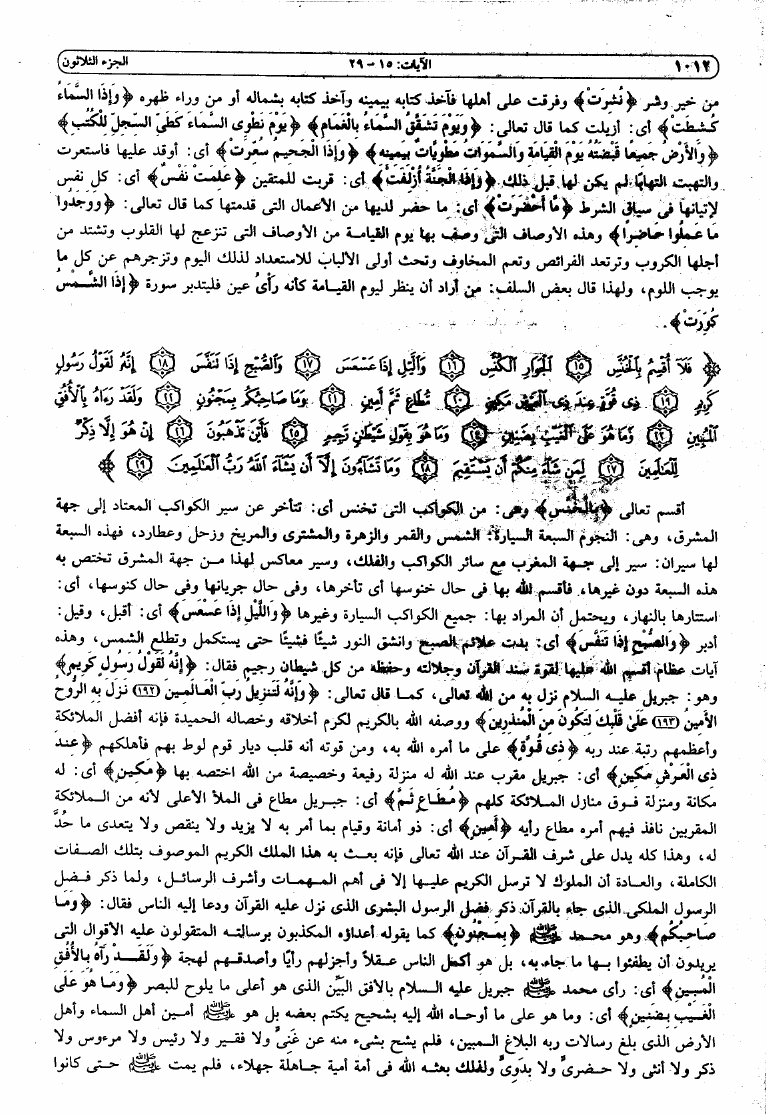 ١٠١٢ الآيات: ١٥ - ٢٩ الجزء الثلاثون
من خير وشر ﴿نُشِرَتْ﴾ وفرقت على أهلها فآخذ كتابه بيمينه وآخذ كتابه بشماله أو من وراء ظهره ﴿وَإِذَا السَّمَاءُ
كُشِطَتْ﴾ أى: أزيلت كما قال تعالى: ﴿وَيَوْمَ تَشَقَّقُ السَّمَاءُ بِالْغَمَامِ﴾ ﴿يَوْمَ نَطْوِى السَّمَاءَ كَطَىِّ السِّجِلِّ لِلْكُتُبِ﴾
﴿وَالأَرْضُ جَمِيعًا قَبْضَتُهُ يَوْمَ الْقِيَامَةِ وَالسَّمَوَاتُ مَطْوِيَّاتٌ بِيَمِينِهِ﴾ ﴿وَإِذَا الْجَحِيمُ سُعِّرَتْ﴾ أى: أوقد عليها فاستعرت
والتهبت التهابًا لم يكن لها قبل ذلك ﴿وَإِذَا الْجَنَّةُ أُزْلِفَتْ﴾ أى: قربت للمتقين ﴿عَلِمَتْ نَفْسٌ﴾ أى: كل نفس
لإتيانها فى سياق الشرط ﴿مَّا أَحْضَرَتْ﴾ أى: ما حضر لديها من الأعمال التى قدمتها كما قال تعالى: ﴿وَوَجَدُوا
مَا عَمِلُوا حَاضِرًا﴾ وهذه الأوصاف التى وصف بها يوم القيامة من الأوصاف التى تنزعج لها القلوب وتشتد من
أجلها الكروب وترتعد الفرائص وتعم المخاوف وتحث أولى الألباب للاستعداد لذلك اليوم وتزجرهم عن كل ما
يوجب اللوم، ولهذا قال بعض السلف: من أراد أن ينظر ليوم القيامة كأنه رأىُ عين فليتدبر سورة ﴿إِذَا الشَّمْسُ
كُوِّرَتْ﴾.
﴿ فَلَا أُقْسِمُ بِالْخُنَّسِ ﴿١٥﴾ الْجَوَارِ الْكُنَّسِ ﴿١٦﴾ وَالَّيْلِ إِذَا عَسْعَسَ ﴿١٧﴾ وَالصُّبْحِ إِذَا تَنَفَّسَ ﴿١٨﴾ إِنَّهُ لَقَوْلُ رَسُولٍ
كَرِيمٍ ﴿١٩﴾ ذِى قُوَّةٍ عِندَ ذِى الْعَرْشِ مَكِينٍ ﴿٢٠﴾ مُّطَاعٍ ثَمَّ أَمِينٍ ﴿٢١﴾ وَمَا صَاحِبُكُم بِمَجْنُونٍ ﴿٢٢﴾ وَلَقَدْ رَءَاهُ بِالْأُفُقِ
الْمُبِينِ ﴿٢٣﴾ وَمَا هُوَ عَلَى الْغَيْبِ بِضَنِينٍ ﴿٢٤﴾ وَمَا هُوَ بِقَوْلِ شَيْطَانٍ رَّجِيمٍ ﴿٢٥﴾ فَأَيْنَ تَذْهَبُونَ ﴿٢٦﴾ إِنْ هُوَ إِلَّا ذِكْرٌ
لِّلْعَالَمِينَ ﴿٢٧﴾ لِمَن شَاءَ مِنكُمْ أَن يَسْتَقِيمَ ﴿٢٨﴾ وَمَا تَشَاءُونَ إِلَّا أَن يَشَاءَ اللَّهُ رَبُّ الْعَالَمِينَ ﴿٢٩﴾ ﴾
أقسم تعالى ﴿بِالْخُنَّسِ﴾ وهى: من الكواكب التى تخنس أى: تتأخر عن سير الكواكب المعتاد إلى جهة
المشرق، وهى: النجوم السبعة السيارة: الشمس والقمر والزهرة والمشترى والمريخ وزحل وعطارد، فهذه السبعة
لها سيران: سير إلى جهة المغرب مع سائر الكواكب والفلك، وسير معاكس لهذا من جهة المشرق تختص به
هذه السبعة دون غيرها، فأقسم الله بها فى حال خنوسها أى تأخرها، وفى حال جريانها وفى حال كنوسها، أى:
استتارها بالنهار، ويحتمل أن المراد بها: جميع الكواكب السيارة وغيرها ﴿وَاللَّيْلِ إِذَا عَسْعَسَ﴾ أى: أقبل، وقيل:
أدبر ﴿وَالصُّبْحِ إِذَا تَنَفَّسَ﴾ أى: بدت علائم الصبح وانشق النور شيئًا فشيئًا حتى يستكمل وتطلع الشمس، وهذه
آيات عظام أقسم الله عليها لقوة سند القرآن وجلالته وحفظه من كل شيطان رجيم فقال: ﴿إِنَّهُ لَقَوْلُ رَسُولٍ كَرِيمٍ﴾
وهو: جبريل عليه السلام نزل به من الله تعالى، كما قال تعالى: ﴿وَإِنَّهُ لَتَنزِيلُ رَبِّ الْعَالَمِينَ (١٩٢) نَزَلَ بِهِ الرُّوحُ
الأَمِينُ (١٩٣) عَلَىٰ قَلْبِكَ لِتَكُونَ مِنَ الْمُنذِرِينَ﴾ ووصفه الله بالكريم لكرم أخلاقه وخصاله الحميدة فإنه أفضل الملائكة
وأعظمهم رتبة عند ربه ﴿ذِى قُوَّةٍ﴾ على ما أمره الله به، ومن قوته أنه قلب ديار قوم لوط بهم فأهلكهم ﴿عِندَ
ذِى الْعَرْشِ مَكِينٍ﴾ أى: جبريل مقرب عند الله له منزلة رفيعة وخصيصة من الله اختصه بها ﴿مَكِينٍ﴾ أى: له
مكانة ومنزلة فوق منازل الملائكة كلهم ﴿مُطَاعٍ ثَمَّ﴾ أى: جبريل مطاع فى الملأ الأعلى لأنه من الملائكة
المقربين نافذ فيهم أمره مطاع رأيه ﴿أَمِينٍ﴾ أى: ذو أمانة وقيام بما أمر به لا يزيد ولا ينقص ولا يتعدى ما حُدَّ
له، وهذا كله يدل على شرف القرآن عند الله تعالى فإنه بعث به هذا الملك الكريم الموصوف بتلك الصفات
الكاملة، والعادة أن الملوك لا ترسل الكريم عليها إلا فى أهم المهمات وأشرف الرسائل، ولما ذكر فضل
الرسول الملكى الذى جاء بالقرآن ذكر فضل الرسول البشرى الذى نزل عليه القرآن ودعا إليه الناس فقال: ﴿وَمَا
صَاحِبُكُم﴾ وهو محمد ﷺ ﴿بِمَجْنُونٍ﴾ كما يقوله أعداؤه المكذبون برسالته المتقولون عليه الأقوال التى
يريدون أن يطفئوا بها ما جاء به، بل هو أكمل الناس عقلاً وأجزلهم رأيًا وأصدقهم لهجة ﴿وَلَقَدْ رَآهُ بِالأُفُقِ
الْمُبِينِ﴾ أى: رأى محمد ﷺ جبريل عليه السلام بالأفق البيِّن الذى هو أعلى ما يلوح للبصر ﴿وَمَا هُوَ عَلَى
الْغَيْبِ بِضَنِينٍ﴾ أى: وما هو على ما أوحاه الله إليه بشحيح يكتم بعضه بل هو ﷺ أمين أهل السماء وأهل
الأرض الذى بلغ رسالات ربه البلاغ المبين، فلم يشح بشىء منه عن غَنىٍّ ولا فقير ولا رئيس ولا مرءوس ولا
ذكر ولا أنثى ولا حضرىٍّ ولا بدوىٍّ ولذلك بعثه الله فى أمة أمية جاهلة جهلاء، فلم يمت ﷺ حتى كانوا